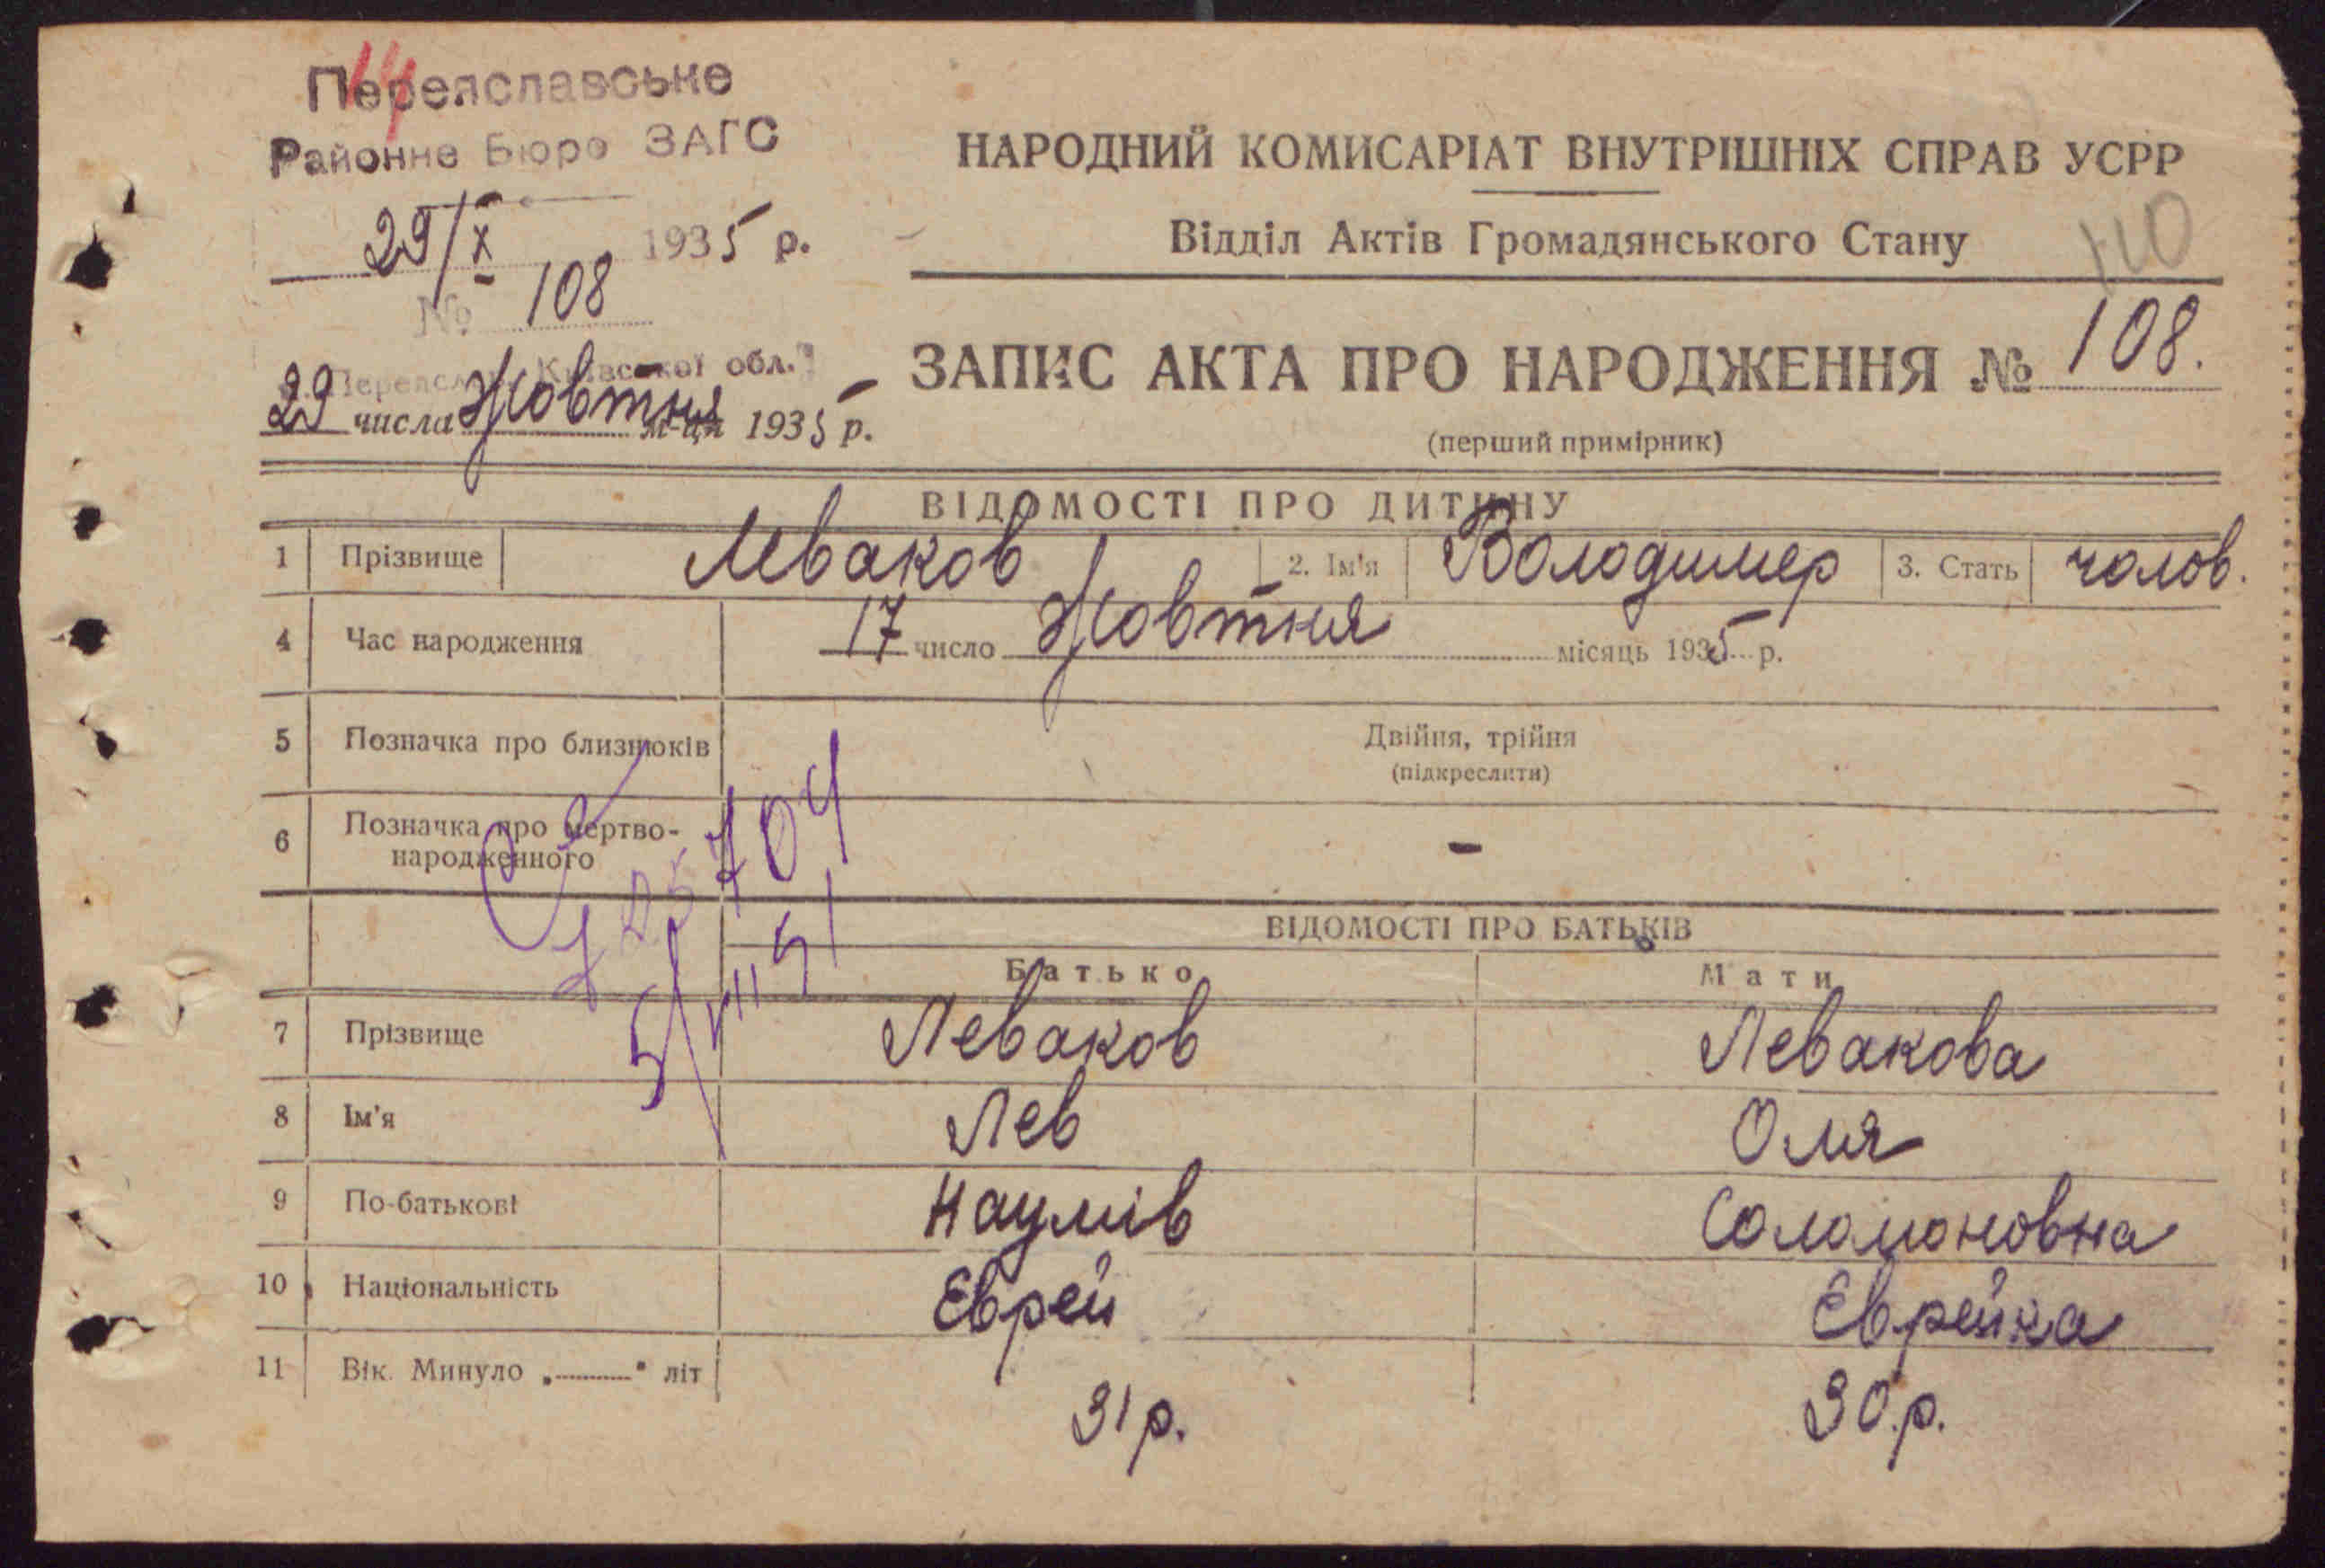 14
Переяславське
Районне Бюро ЗАГС
29/X 1935 р.
№ 108
Київської обл.
29 числа Жовтня м-ця 1935 р.
НАРОДНИЙ КОМИСАРІАТ ВНУТРІШНІХ СПРАВ УСРР
Відділ Актів Громадянського Стану
110
ЗАПИС АКТА ПРО НАРОДЖЕННЯ № 108.
(перший примірник)
ВІДОМОСТІ ПРО ДИТИНУ
1 Прізвище Леваков 2. Ім'я Володимер 3. Стать чолов.
4 Час народження 17 число Жовтня місяць 1935 р.
5 Позначка про близнюків Двійня, трійня
(підкреслити)
6 Позначка про мертво-
народженного -
704
5/VII 51
ВІДОМОСТІ ПРО БАТЬКІВ
Батько Мати
7 Прізвище Леваков Левакова
8 Ім'я Лев Оля
9 По-батькові Наумів Соломоновна
10 Національність Єврей Єврейка
11 Вік. Минуло „ “ літ 31 р. 30.р.